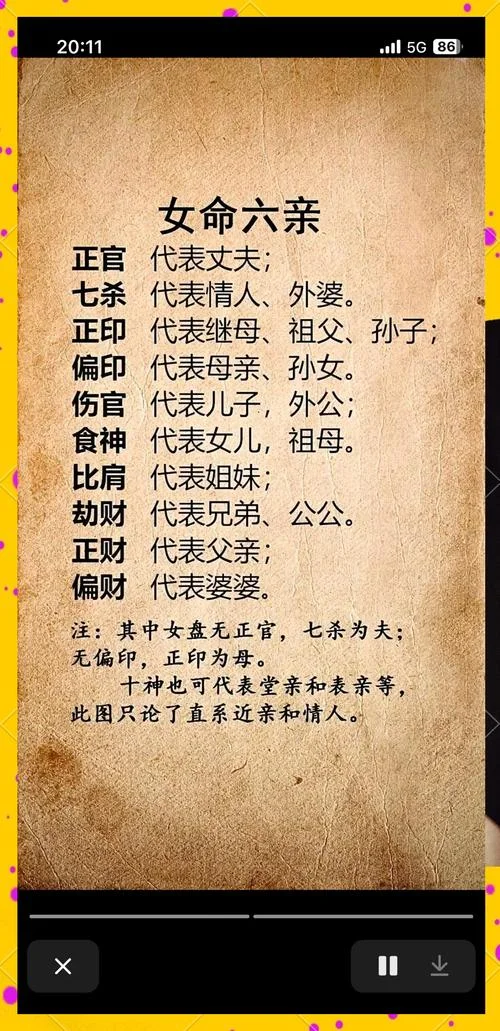 20:11
5G 86
女命六亲
正官 代表丈夫；
七杀 代表情人、外婆。
正印 代表继母、祖父、孙子；
偏印 代表母亲、孙女。
伤官 代表儿子，外公；
食神 代表女儿，祖母。
比肩 代表姐妹；
劫财 代表兄弟、公公。
正财 代表父亲；
偏财 代表婆婆。
注：其中女盘无正官，七杀为夫；
无偏印，正印为母。
十神也可代表堂亲和表亲等，
此图只论了直系近亲和情人。